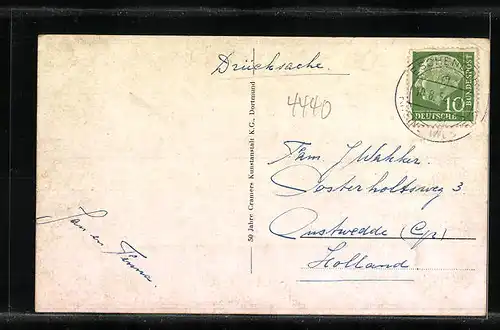 Drücksache.
4440
DEUTSCHE
BUNDESPOST
10
50 Jahre Cramers Kunstanstalt K.G., Dortmund
Fam. J Wakker.
Oosterholtsweg 3
Onstwedde (Gr)
Holland
Jan en Tinna.